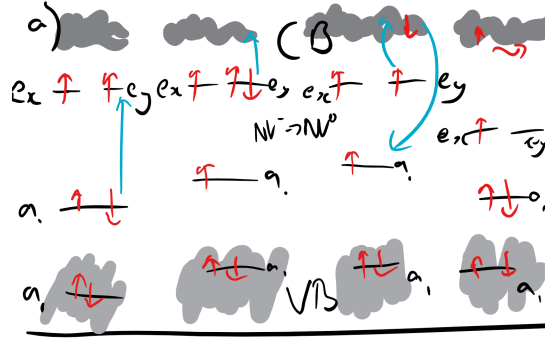 a) CB
ex ey ex ex ey
NV⁻→NV⁰
ex ey
a₁ a₁ a₁ a₁
a₁ a₁ VB a₁ a₁